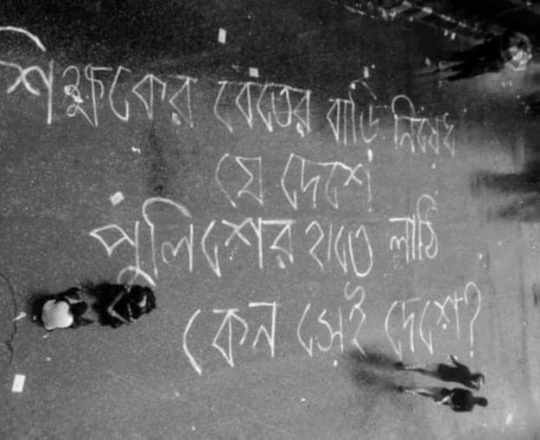 শিক্ষকের বেতের বাড়ি নিষেধ
যে দেশে
পুলিশের হাতে লাঠি
কেন সেই দেশে?